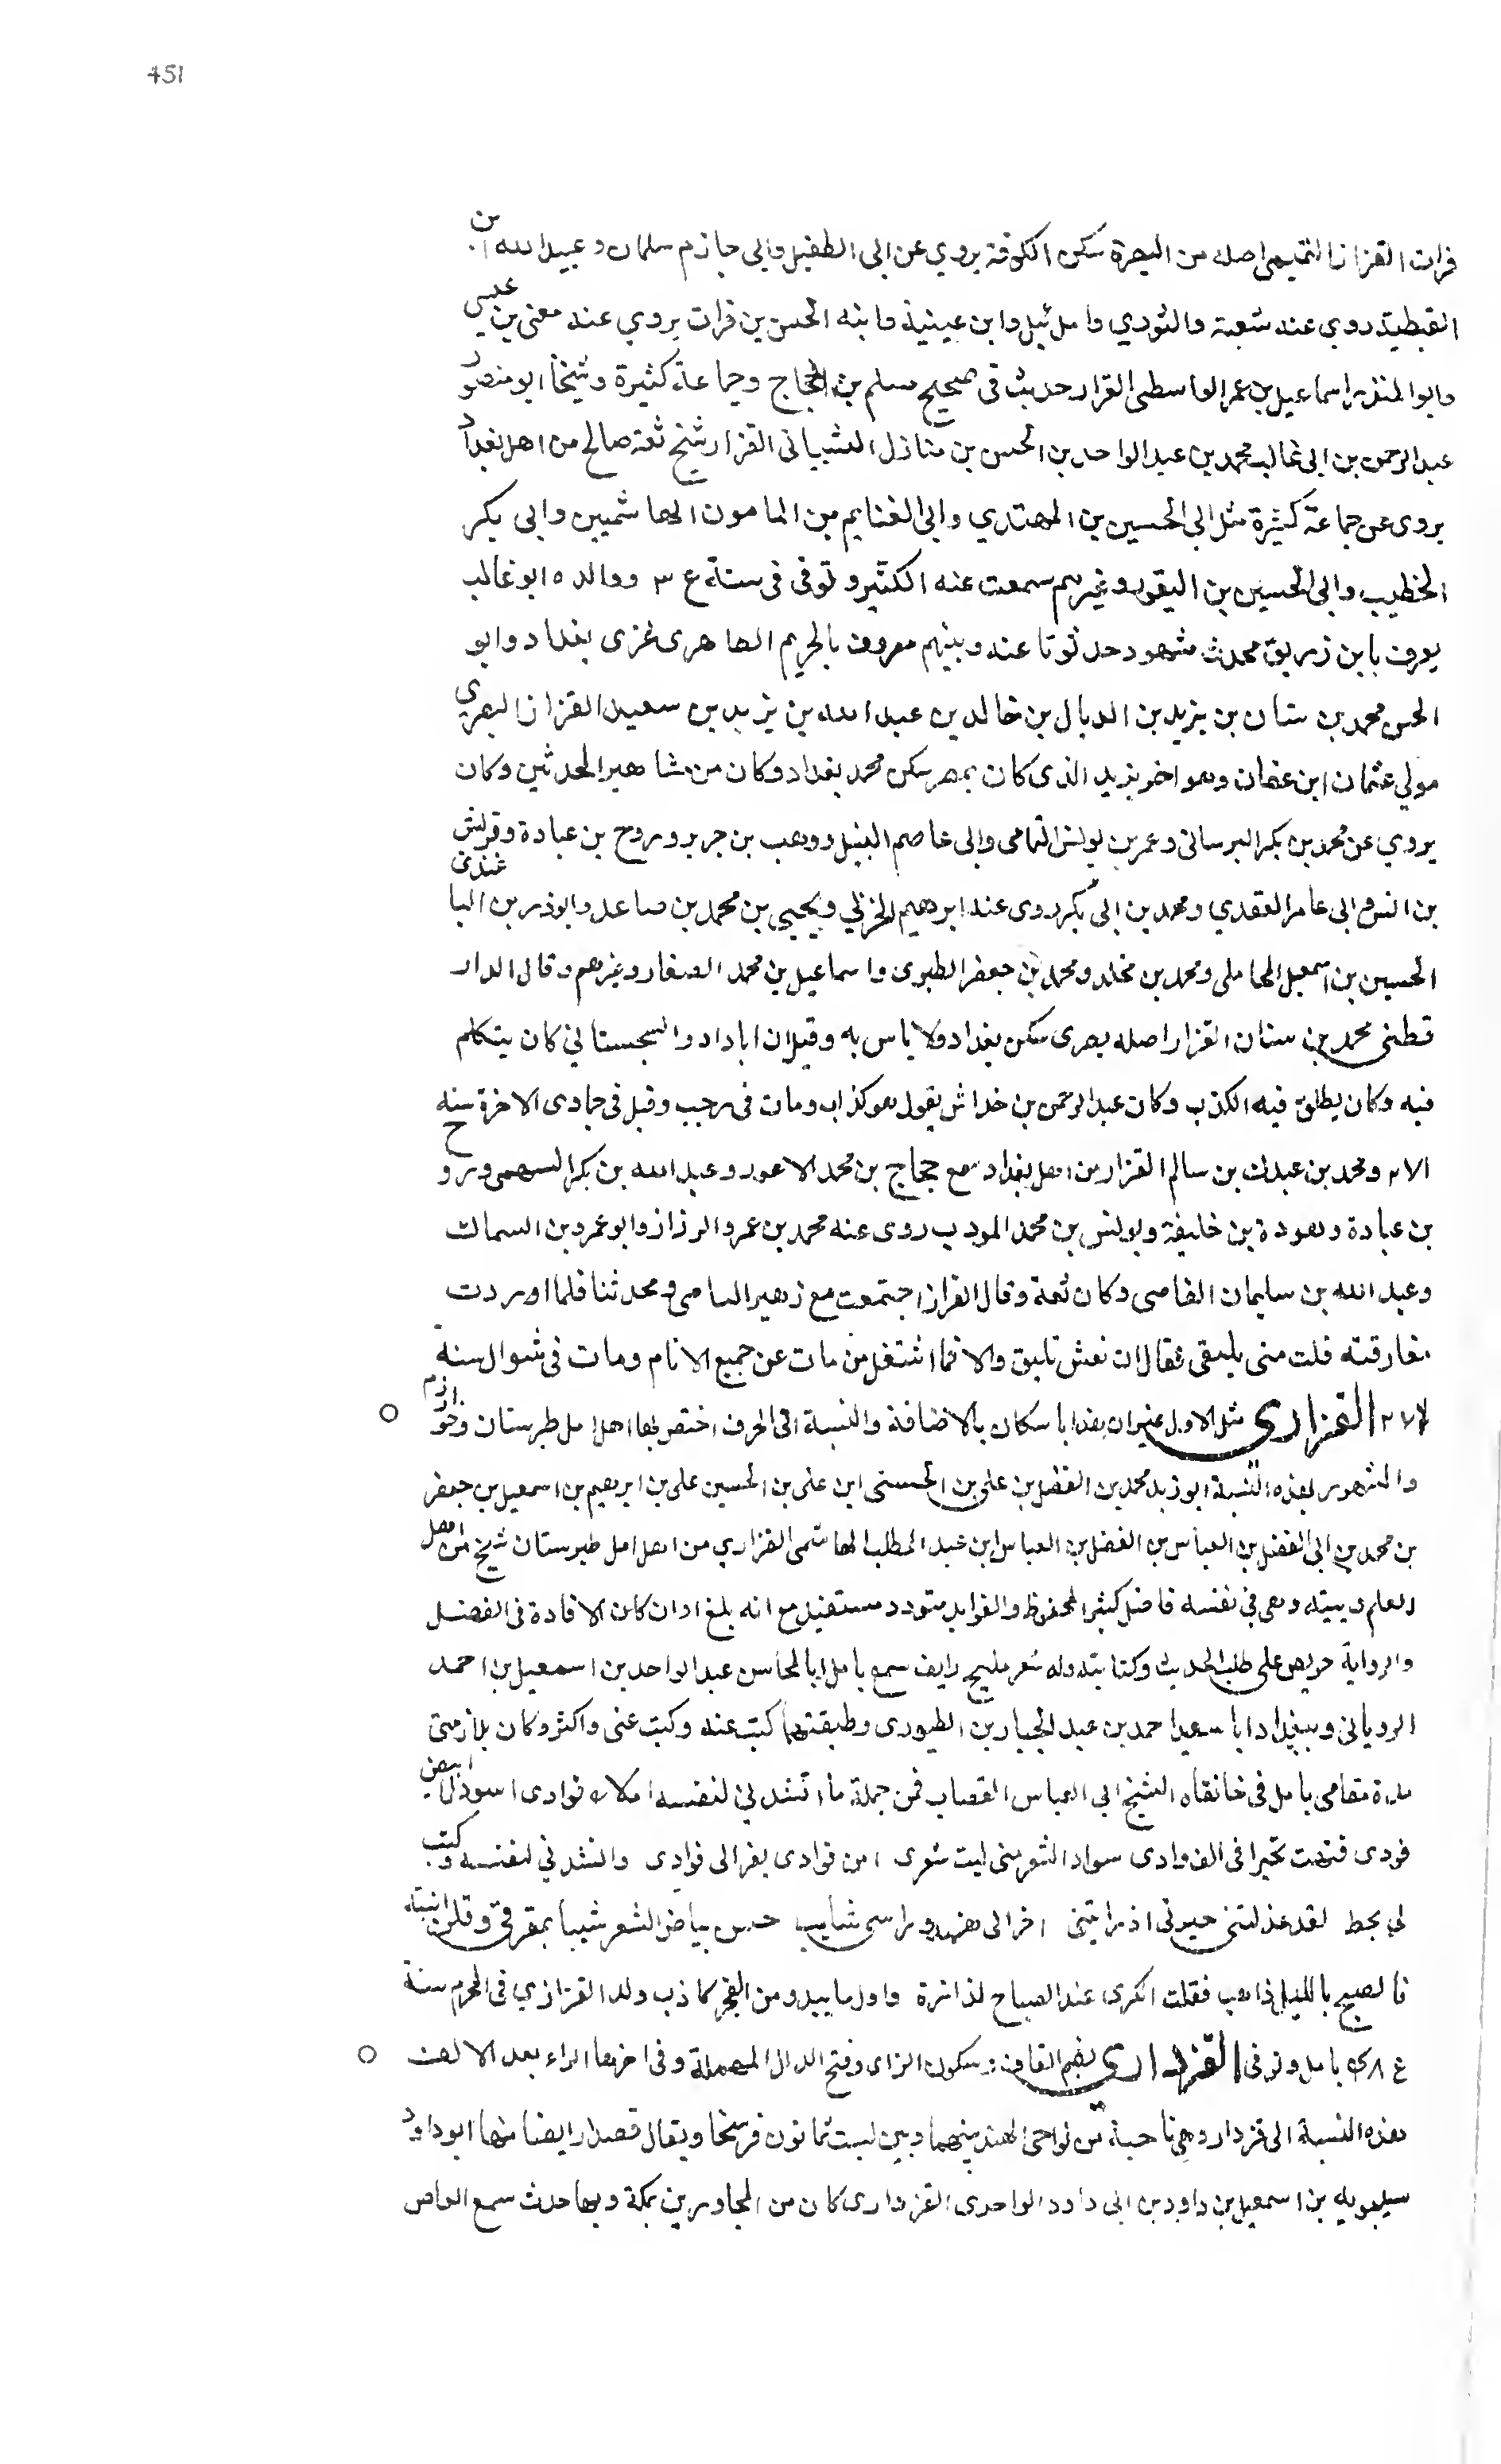 451
فرات القزاز التميمي اصله من البصرة سكن الكوفة يروي عن ابي الطفيل وابي حازم سلمان وعبيد الله بن
القبطية روى عنه شعبة والثوري وابن عيينة وابنه الحسن بن فرات يروي عنه معن بن عيسى
وابو المنذر اسماعيل بن عمر الواسطي القزاز حديثه في صحيح مسلم بن الحجاج وجماعة كثيرة وشيخنا ابو منصور
عبد الرحمن بن ابي غالب محمد بن عبد الواحد بن الحسن بن منازل الشيباني القزاز شيخ ثقة صالح من اهل بغداد
يروى عن جماعة كثيرة مثل ابي الحسين بن المهتدي وابي الغنايم بن المامون الهاشميين وابي بكر
الخطيب وابي الحسين بن النقور وغيرهم سمعت عنه الكثير وتوفى في سنة ع ٣ ووالده ابو غالب
يعرف بابن زريق محدث مشهور حدثونا عنه وبيتهم معروف بالحريم الطاهرى غربى بغداد وابو
الحسن محمد بن سنان بن يزيد بن الديال بن خالد بن عبد الله بن يزيد بن سعيد القزاز البصري
مولي عثمان ابن عفان وهو اخو يزيد الذى كان بمصر سكن محمد بغداد وكان من مشاهير المحدثين وكان
يروي عن محمد بن بكر البرساني وعمر بن يونس اليمامى وابي عاصم النبيل ووهب بن جرير وروح بن عبادة وقريش
بن انس وابي عامر العقدي ومحمد بن ابى بكر روى عنه ابرهيم الحربي ويحيى بن محمد بن صاعد وابو ذر بن الباغندى
الحسين بن اسمعيل المحاملى ومحمد بن مخلد ومحمد بن جعفر الطبرى واسماعيل بن محمد الصفار وغيرهم وقال الدار
قطنى محمد بن سنان القزاز اصله بصرى سكن بغداد ولا باس به وقيل ان ابا داود السجستاني كان يتكلم
فيه وكان يطلق فيه الكذب وكان عبد الرحمن بن خداش يقول هو كذاب ومات في رجب وقيل فى جمادى الاخرة سنه
ومحمد بن عبدك بن سالم القزاز من اهل بغداد سمع حجاج بن محمد الاعور وعبد الله بن بكر السهمى وروح
بن عبادة وهوذة بن خليفة ويونس بن محمد المودب روى عنه محمد بن عمرو الرزاز وابو عمرو بن السماك
وعبد الله بن سليمان الفامى وكان ثقة وقال القزاز اجتمعت مع زهير البابى ومحدثنا فلما اوردت
مفارقته قلت متى يلتقى فقال ان نعش نلتق والا فما اشتغل من مات عن جميع الانام ومات فى شوال سنة
القزارى مثل الاول غير ان هذا باسكان بالاضافة والنسبة الى الحرف اختص بها اهل امل طبرستان وخوارزم
والمشهور بهذه النسبة ابو زيد محمد بن الفضل بن على بن الحسنى ابن على بن الحسين على بن ابرهيم بن اسمعيل بن جعفر
بن محمد بن ابى الفضل بن العباس بن الفضل بن العباس ابن عبد المطلب الهاشمى القزاري من اهل امل طبرستان شيخ من اهل
العلم وبيته وهى في نفسه فاضل كثير المحفوظ والفوايد متودد مستفيد مع انه بلغ اوان كان الافادة فى الفضل
والرواية حريص على طلب الحديث وكتابته وله شعر مليح رايق سمع بامل ابا المحاسن عبد الواحد بن اسمعيل بن احمد
الرويانى وببغداد ابا سعيد احمد بن عبد الجبار بن الطيورى وطبقتهما كتبت عنه وكتب عنى واكثر وكان يلازمنى
مدة مقامى بامل فى خانقاه الشيخ ابى العباس القصاب فمن جملة ما انشدنى لنفسه املاء فوادى اسود ابيض
فودى فتهت تحيرا فى الف وادى سواد الشعر منى ليت شعرى امن فوادى يفر الى فوادي وانشدني لنفسه وكتب
لي بخط لقد عذلتنى جيرتى اذ راتينى اخرالى وراسى شايب حسن بياض الشعر شيبا بمفرقى وقلن انتبه
فالصبح بالليل ذاهب فقلت الكرى عند الصباح لذاذة واول ما يبدو من الفجر كاذب ولد القزازي في المحرم سنة
بامل وتوفى القزدارى بضم القاف وسكون الزاى وفتح الدال المهملة وفى اخرها الراء بعد الالف
هذه النسبة الى قزدار وهي ناحية من نواحى الهند بينهما وبين بست ثمانون فرسخا ويقال قصدار ايضا منها ابو داود
سيبويه بن اسمعيل بن داود بن ابى داود الواحدى القزدارى كان من المجاورين بمكة وبها حدث سمع